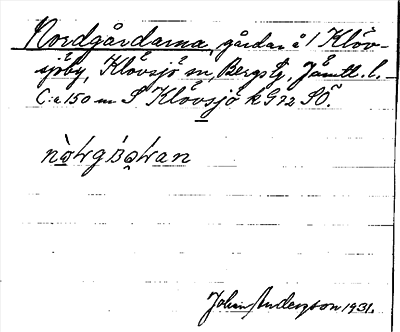 Nordgårdarna, gårdar å 1 Klöv-
sjöby, Klövsjö sn, Bergs tg, Jämtl. l.
C:a 150 m S Klövsjö k G 72 SÖ.
Johan Anderzson 1931.